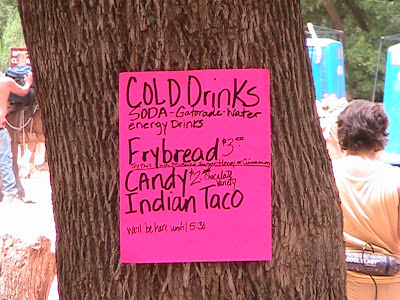 COLD Drinks
SODA - Gatorade - Water
energy Drinks
Frybread $3.00
Powdered Sugar Honey or Cinnamon
CAndy $2.00 Chocolate
Variety
Indian Taco
We'll be here until 5:30